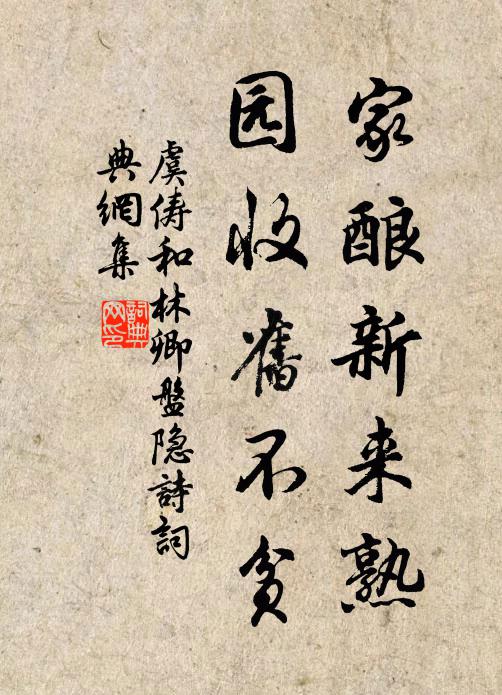 家酿新来熟
园收旧不贫
虞俦和林卿盤隐詩詞
典網集
詞典网印